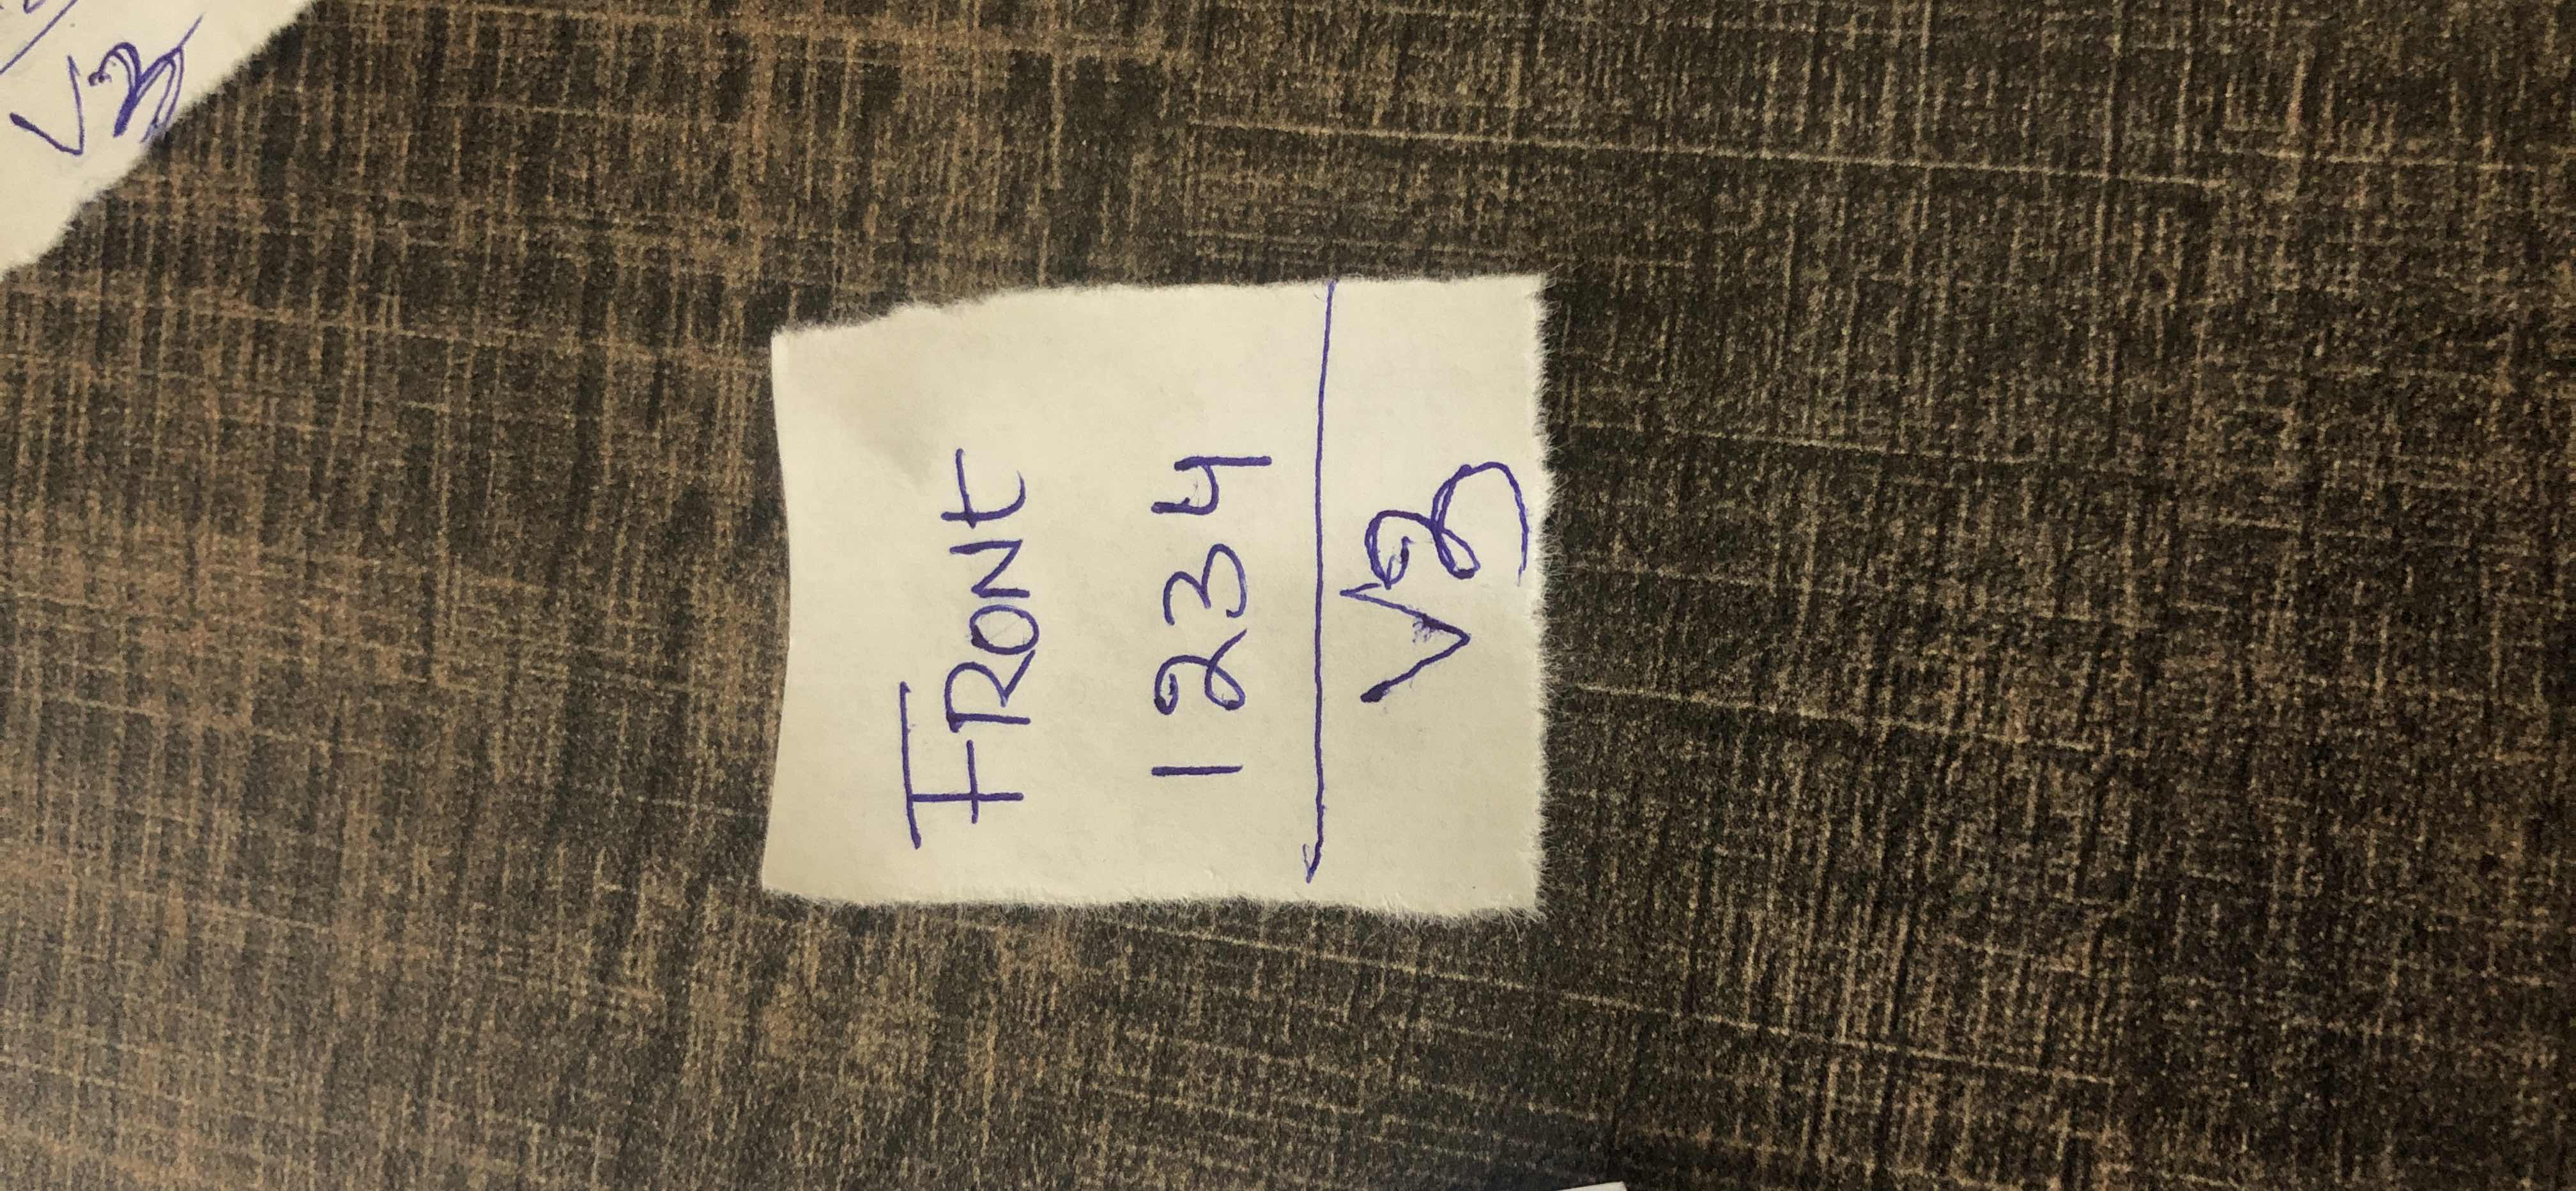 FRONt
1234
V3